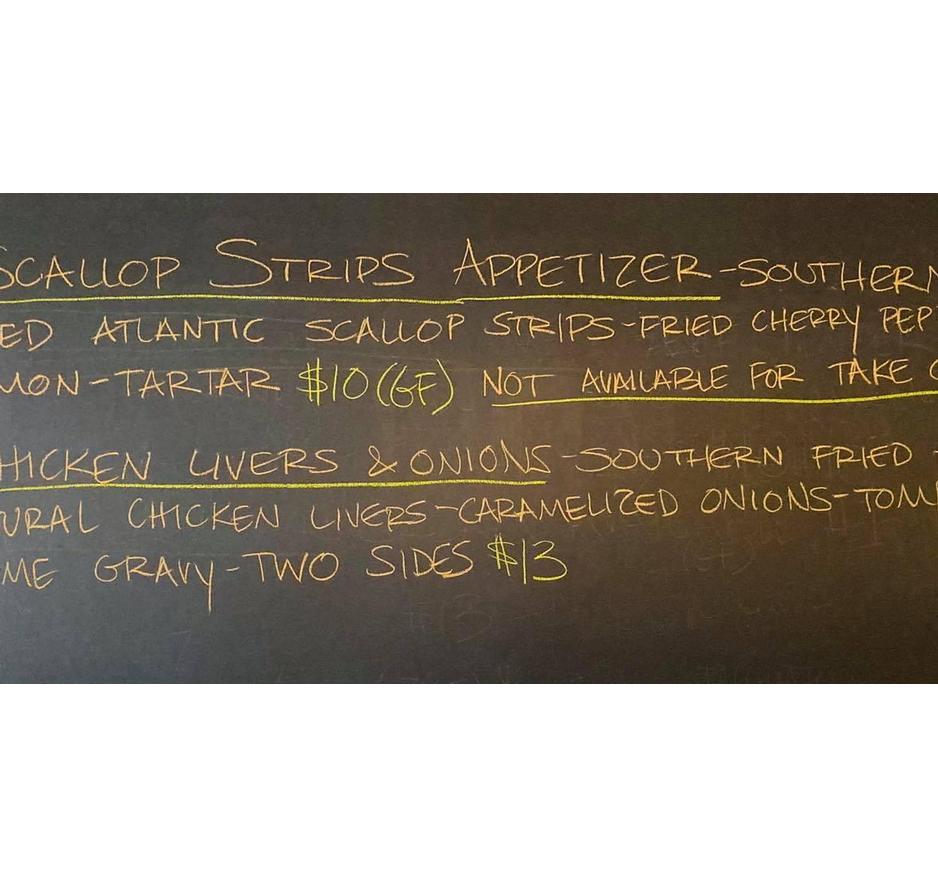 SCALLOP STRIPS APPETIZER-SOUTHERN
ED ATLANTIC SCALLOP STRIPS-FRIED CHERRY PEP
MON-TARTAR $10(GF) NOT AVAILABLE FOR TAKE
HICKEN LIVERS & ONIONS-SOUTHERN FRIED -
URAL CHICKEN LIVERS-CARAMELIZED ONIONS-TOM
ME GRAVY-TWO SIDES $13